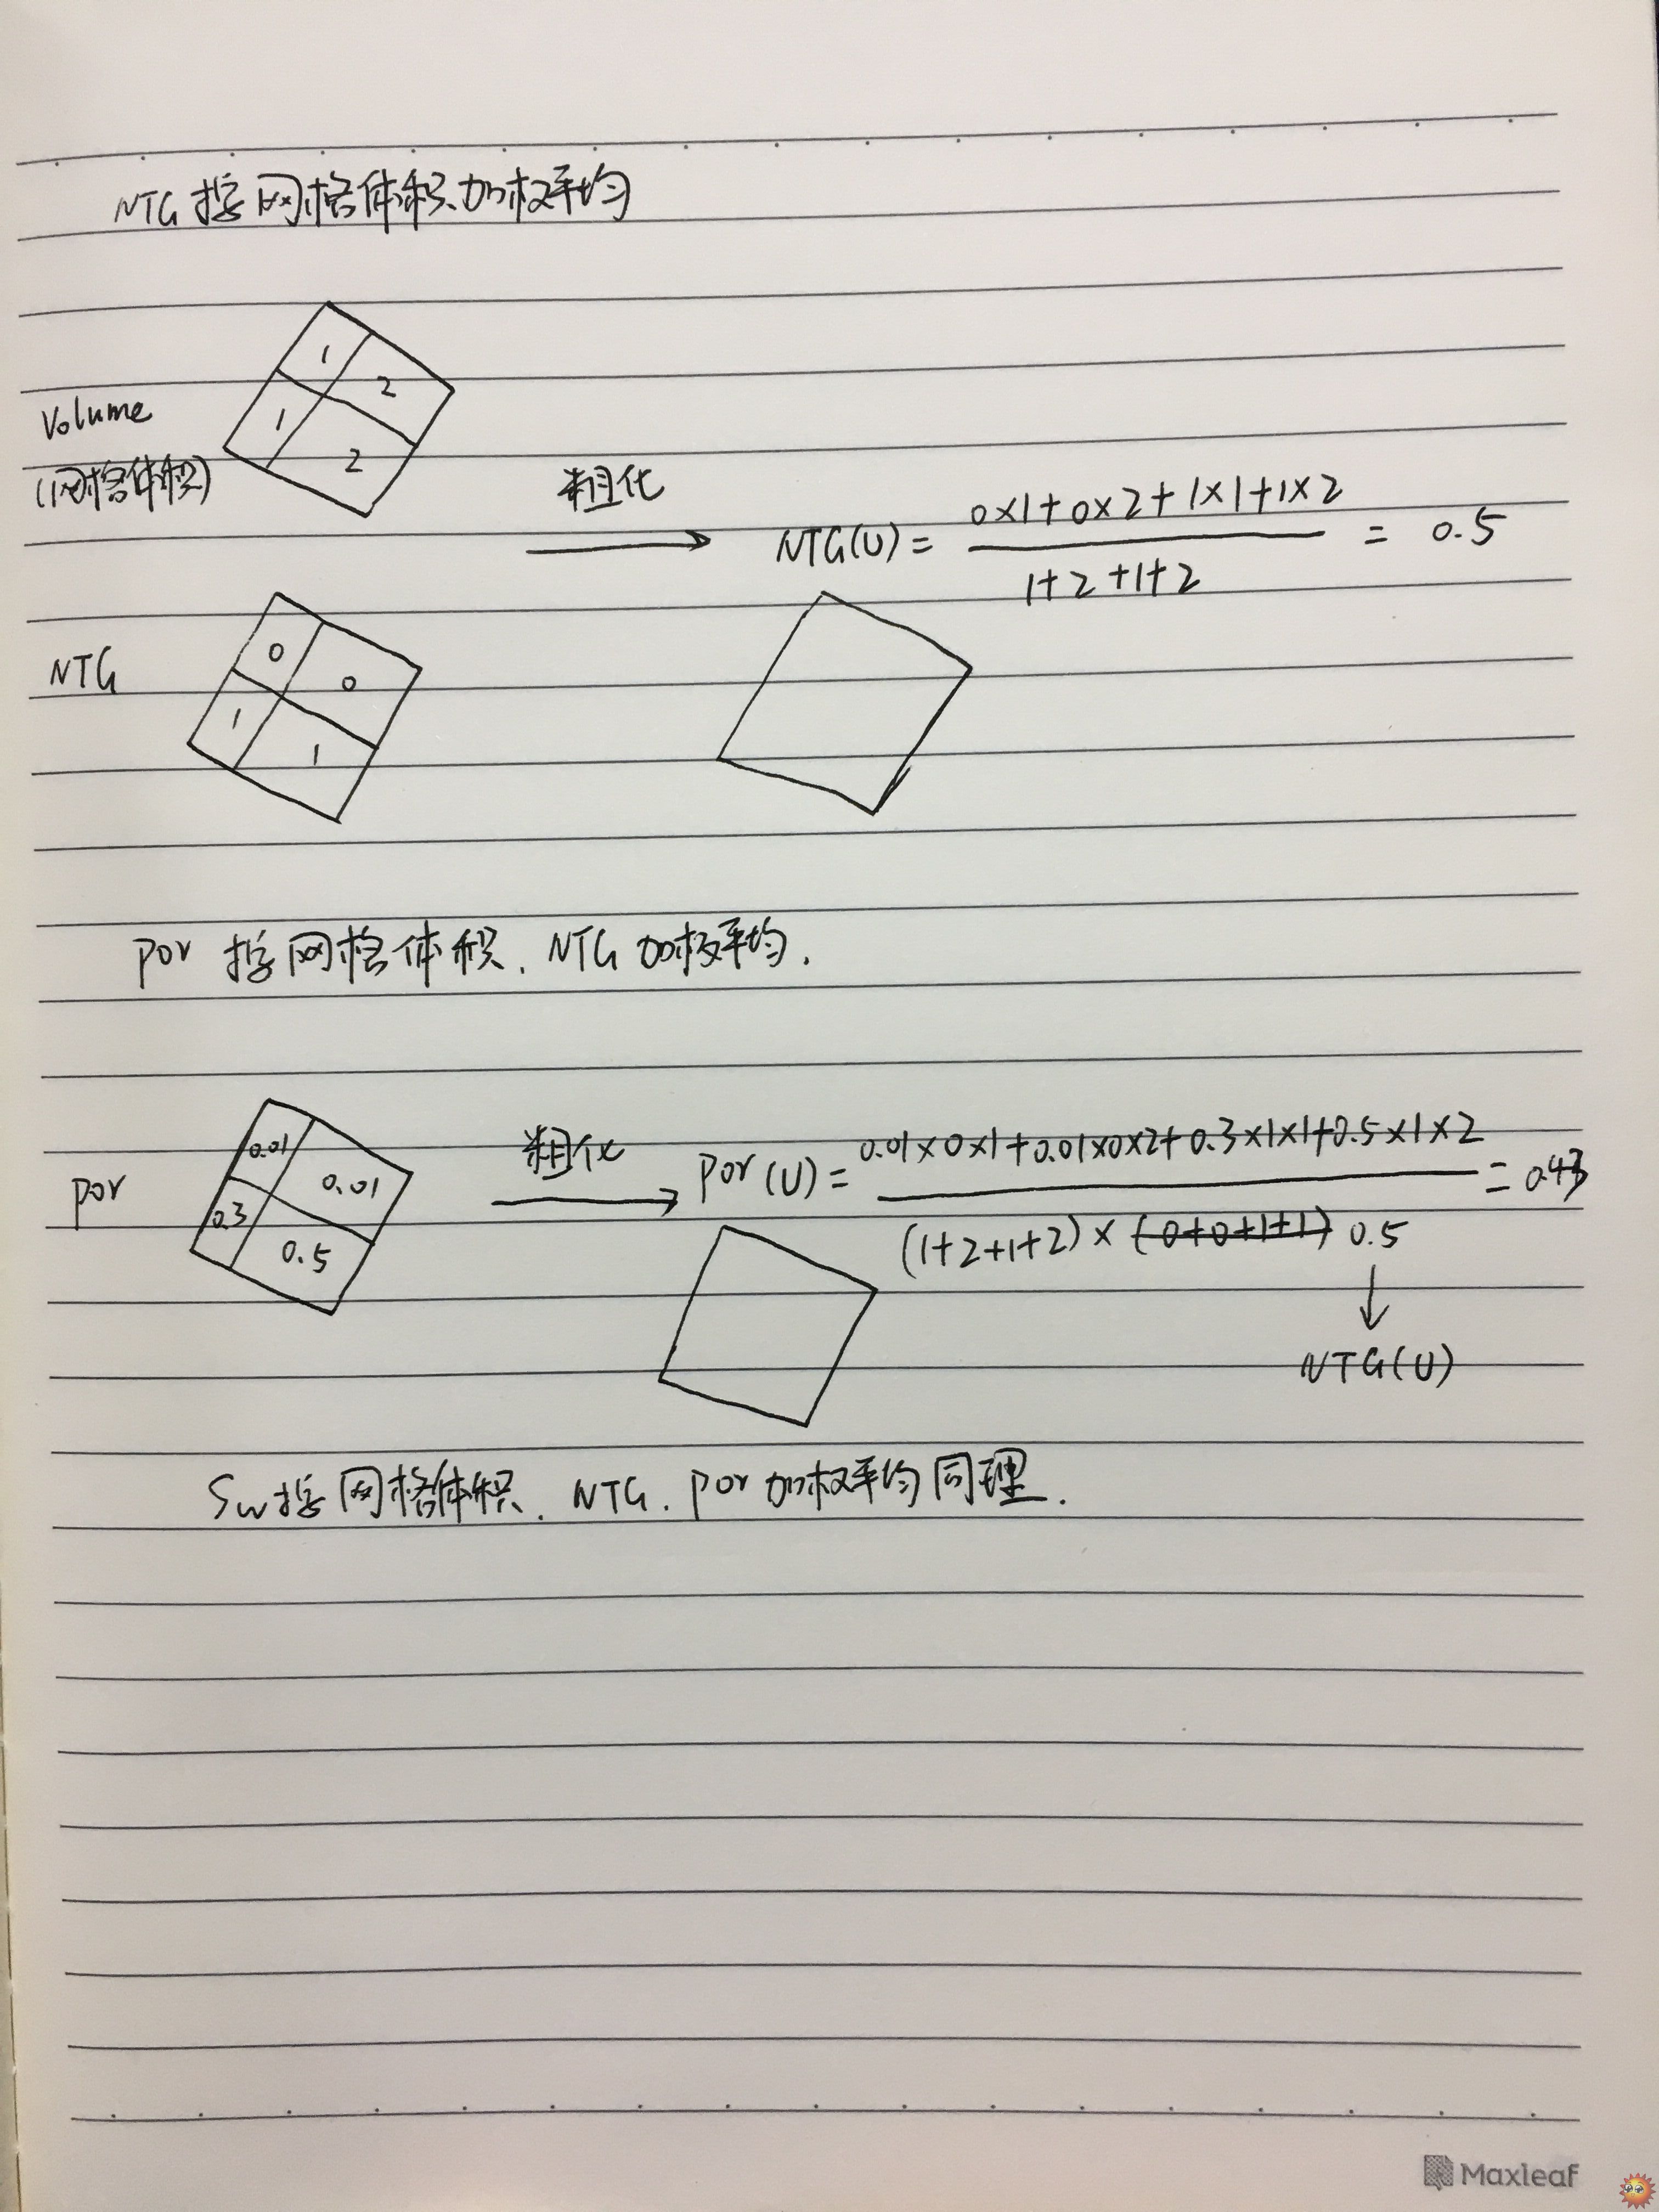 NTG 按网格体积加权平均
1
2
1
2
Volume
(网格体积)
粗化
NTG(U) = (0×1+0×2+1×1+1×2)/(1+2+1+2) = 0.5
NTG
0
0
1
1
por 按网格体积、NTG 加权平均.
por
0.01
0.01
0.3
0.5
粗化
por(U) = (0.01×0×1+0.01×0×2+0.3×1×1+0.5×1×2)/((1+2+1+2)×(0+0+1+1) 0.5) = 0.43
NTG(U)
Sw按网格体积、NTG、por 加权平均同理.
Maxleaf